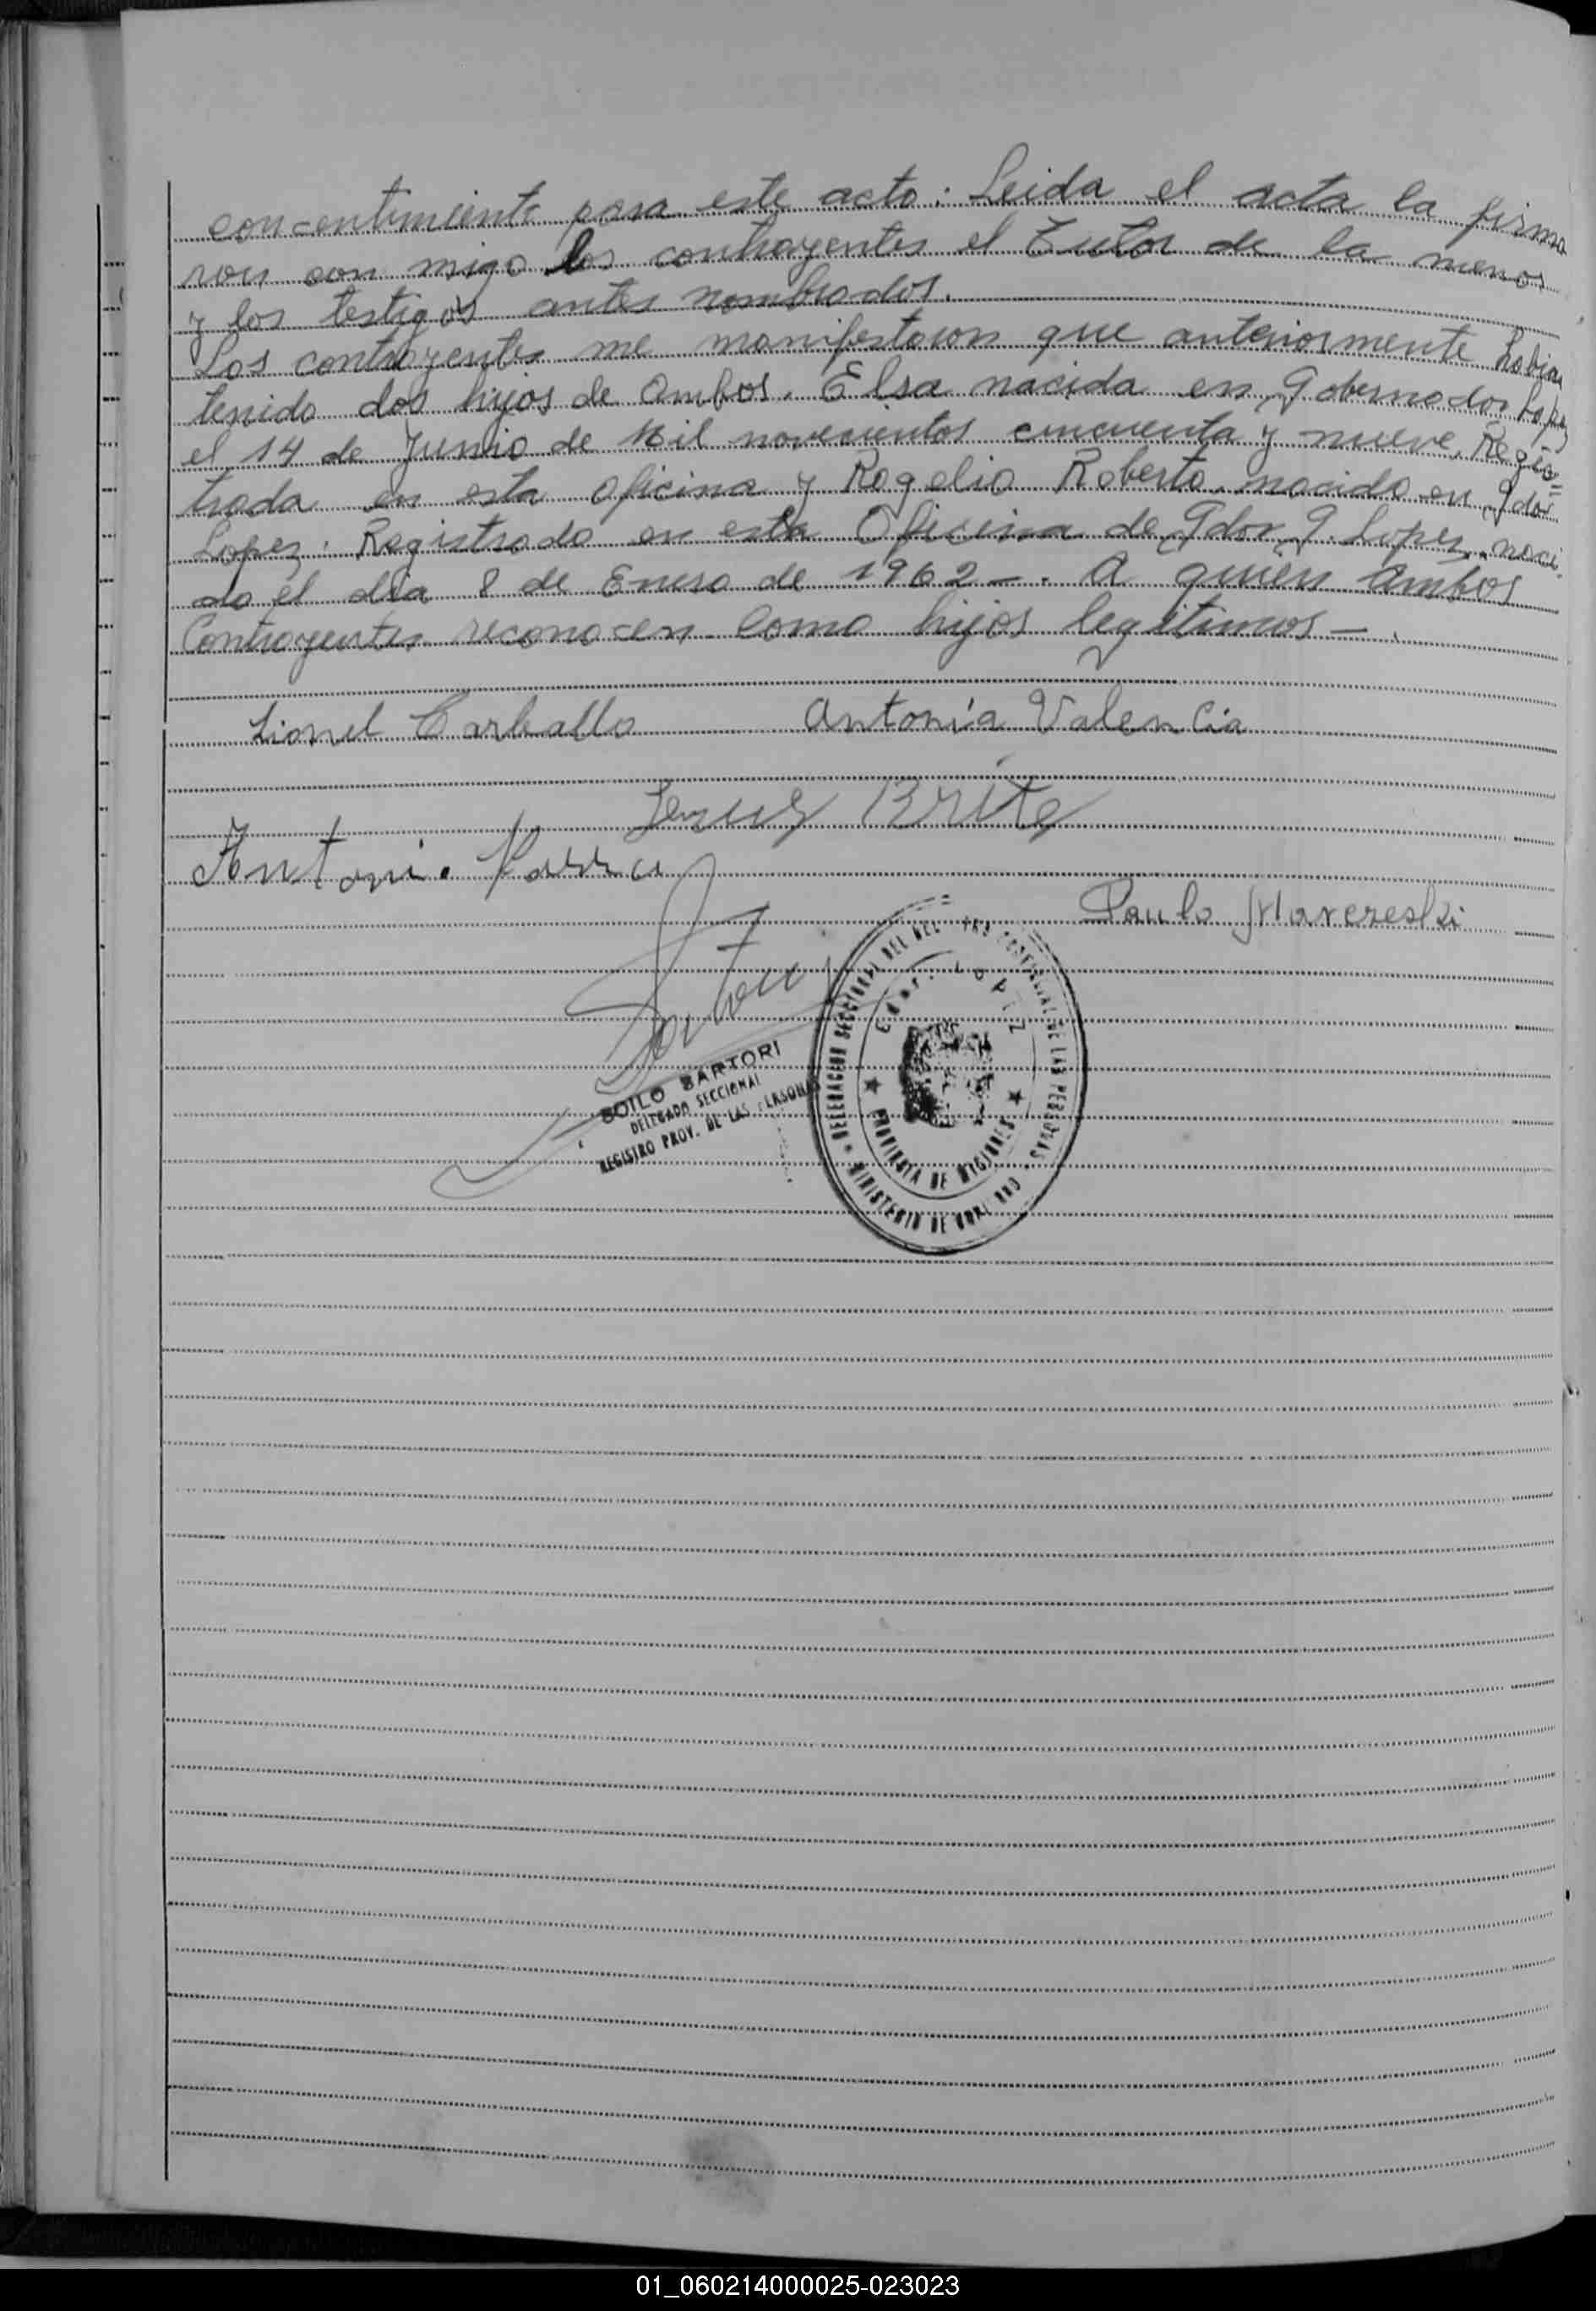 concentimiento para este acto: Leida el acta la firma
ron con migo los contrayentes el Tutor de la menor
y los testigos antes nombrados.
Los contrayentes me manifestaron que anteriormente habian
tenido dos hijos de ambos. Elsa nacida en Gobernador Lopez
el 14 de Junio de Mil novecientos cincuenta y nueve, Regis=
trada en esta oficina y Rogelio Roberto nacido en Gdor
Lopez. Registrado en esta Oficina de Gdor G. Lopez, naci
do el dia 8 de Enero de 1962-. A quien ambos
Contrayentes reconocen como hijos legitimos -.
Lionel Carballo Antonia Valencia
Jesus Brite
Antoni.
Paulo
SARTORI
DELEGADO SECCIONAL
REGISTRO PROV. DE LAS
DELEGACION SECCIONAL DEL
DE LAS PERSONAS
MINISTERIO DE
Gdor. Lopez
PROVINCIA DE MISIONES
01_060214000025-023023